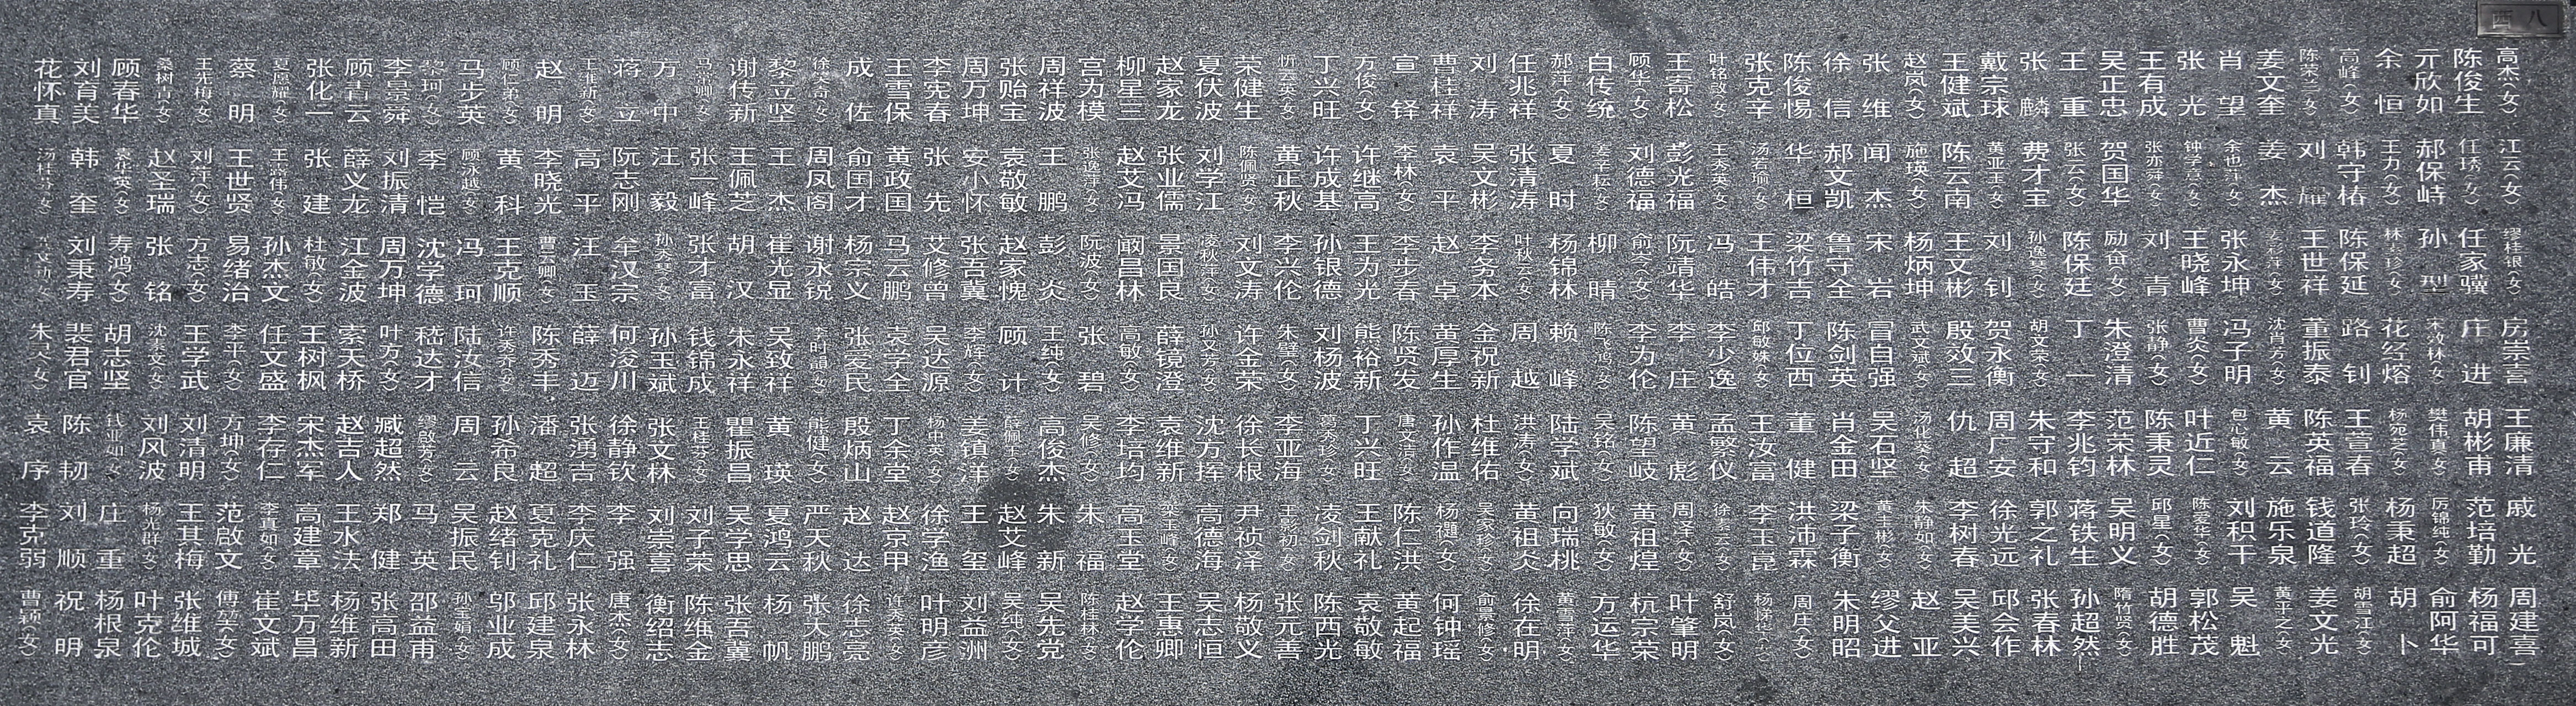 西八
高杰(女) 陈俊生 亓欣如 余恒 高峰(女) 姜文奎 肖望 张光 王有成 吴正忠 王重 张麟 戴宗球 王健斌 赵岚(女) 张维 徐信 陈俊惕 张克辛 叶铭改(女) 王寄松 顾华(女) 白传统 郝萍(女) 任兆祥 刘涛 曹桂祥 宣铎 方俊(女) 丁兴旺 忻云英(女) 荣健生 夏伏波 赵家龙 柳星三 宫为模 周祥波 张贻宝 周万坤 李宪春 王雪保 成佐 黎立坚 谢传新 方中 蒋立 赵明 顾仁弟(女) 马步英 黎珂(女) 李景舜 顾青云 张化一 夏愿耀(女) 蔡明 王光梅(女) 桑树青(女) 顾春华 刘育美 花怀真
江云(女) 任琇(女) 郝保峙 王力(女) 韩守椿 刘耀 姜杰 余也萍(女) 钟学意(女) 张亦舜(女) 贺国华 张云(女) 费才宝 黄亚玉(女) 陈云南 施瑛(女) 闻杰 郝文凯 华桓 汤若瑜(女) 王秀英(女) 彭光福 刘德福 姜辛耘(女) 夏时 张清涛 吴文彬 袁平 李林(女) 许继高 许成基 黄正秋 陈佩贤(女) 刘学江 张业儒 赵艾冯 张逸萍(女) 王鹏 袁敬敏 安小怀 张先 黄政国 俞国才 周凤阁 王杰 王佩芝 张一峰 汪毅 阮志刚 高平 李晓光 黄科 顾冰越(女) 季恺 刘振清 薛义龙 张建 王路伟(女) 王世贤 刘萍(女) 赵圣瑞 袁华英(女) 韩奎 汤桂芬(女)
缪桂银(女) 任家骥 孙型 林克珍(女) 陈保延 王世祥 张永坤 王晓峰 刘青 励奋(女) 陈保廷 孙逸琴(女) 刘钊 王文彬 杨炳坤 宋岩 鲁守全 梁竹吉 王伟才 冯皓 阮靖华 俞奕(女) 柳晴 杨锦林 叶秋云(女) 李务本 赵卓 李步春 王为光 孙银德 李兴伦 刘文涛 凌秋萍(女) 景国良 阚昌林 阮波(女) 彭炎 赵家愧 张吾冀 艾修曾 马云鹏 杨宗义 谢永锐 崔光显 胡汉 张才富 孙秀琴(女) 牟汉宗 汪玉 曹云卿(女) 王克顺 冯珂 沈学德 周万坤 江金波 杜敏(女) 孙杰文 易绪治 方志(女) 张铭 寿鸿(女) 刘秉寿
房崇喜 庄进 宋效林(女) 花经熔 路钊 董振泰 沈肖芳(女) 冯子明 曹炎(女) 张静(女) 朱澄清 丁一 胡文荣(女) 贺永衡 殷效三 武文斌(女) 冒自强 陈剑英 丁位西 邱敏姝(女) 李少逸 李庄 李为伦 陈飞鸿(女) 赖峰 周越 金祝新 黄厚生 陈贤发 熊裕新 刘杨波 朱莹(女) 许金荣 孙文芳(女) 薛镜澄 高敏(女) 张碧 王纯(女) 顾计 李辉(女) 吴达源 袁学全 张爱民 李时晶(女) 吴致祥 朱永祥 钱锦成 孙玉斌 何浚川 薛迈 陈秀丰 许秀乔(女) 陆汝信 嵇达才 叶方(女) 索天桥 王树枫 任文盛 李平(女) 王学武 沈素文(女) 胡志坚 裴君官 朱灵(女)
王廉清 胡彬甫 樊伟真(女) 杨宛芝(女) 王萱春 陈英福 黄云 包心敏(女) 叶近仁 陈秉灵 范荣林 李兆钧 朱守和 周广安 仇超 汤化葵(女) 吴石坚 肖金田 董健 王汝富 孟繁仪 黄彪 陈望岐 吴铭(女) 陆学斌 洪涛(女) 杜维佑 孙作温 唐文洁(女) 丁兴旺 葛秀珍(女) 李亚海 徐长根 沈方挥 袁维新 李培均 吴修(女) 高俊杰 薛佩玉(女) 姜镇洋 杨中英(女) 丁余堂 殷炳山 熊健(女) 黄瑛 瞿振昌 王桂芬(女) 张文林 徐静钦 张湧吉 潘超 孙希良 周云 缪啟芳(女) 臧超然 赵吉人 宋杰军 李存仁 方坤(女) 刘清明 刘风波 钱亚如(女) 陈韧 袁序
戚光 范培勤 厉锦纯(女) 杨秉超 张玲(女) 钱道隆 施乐泉 刘积干 陈爱华(女) 邱星(女) 吴明义 蒋铁生 郭之礼 徐光远 李树春 朱静如(女) 黄玉彬(女) 梁子衡 洪沛霖 李玉崑 徐素云(女) 周泽(女) 黄祖煌 狄敏(女) 向瑞桃 黄祖炎 吴家珍(女) 杨翘(女) 陈仁洪 王献礼 凌剑秋 王影初(女) 尹祯泽 高德海 栾玉峰(女) 高玉堂 朱福 朱新 赵艾峰 王玺 徐学渔 赵京甲 赵达 严天秋 夏鸿云 吴学思 刘子荣 刘崇喜 李强 李庆仁 夏克礼 赵绪钊 吴振民 马英 郑健 王水法 高建章 李真如(女) 范啟文 王其梅 杨光群(女) 庄重 刘顺 李克弱
周建喜 杨福可 俞阿华 胡卜 胡雪江(女) 姜文光 黄平之(女) 吴魁 郭松茂 胡德胜 隋竹贤(女) 孙超然 张春林 邱会作 吴美兴 赵亚 缪父进 朱明昭 周庄(女) 杨悌华(女) 舒岚(女) 叶肇明 杭宗荣 方运华 黄雪萍(女) 徐在明 俞景修(女) 何钟瑶 黄起福 袁敬敏 陈西光 张元善 杨敬义 吴志恒 王惠卿 赵学伦 陈桂林(女) 吴先党 吴纯(女) 刘益洲 叶明彦 许秀英(女) 徐志亮 张大鹏 杨帆 张吾冀 陈维金 衡绍志 唐杰(女) 张永林 邱建泉 邬业成 孙宝娟(女) 邵益甫 张高田 杨维新 毕万昌 崔文斌 傅坚(女) 张维城 叶克伦 杨根泉 祝明 曹颖(女)